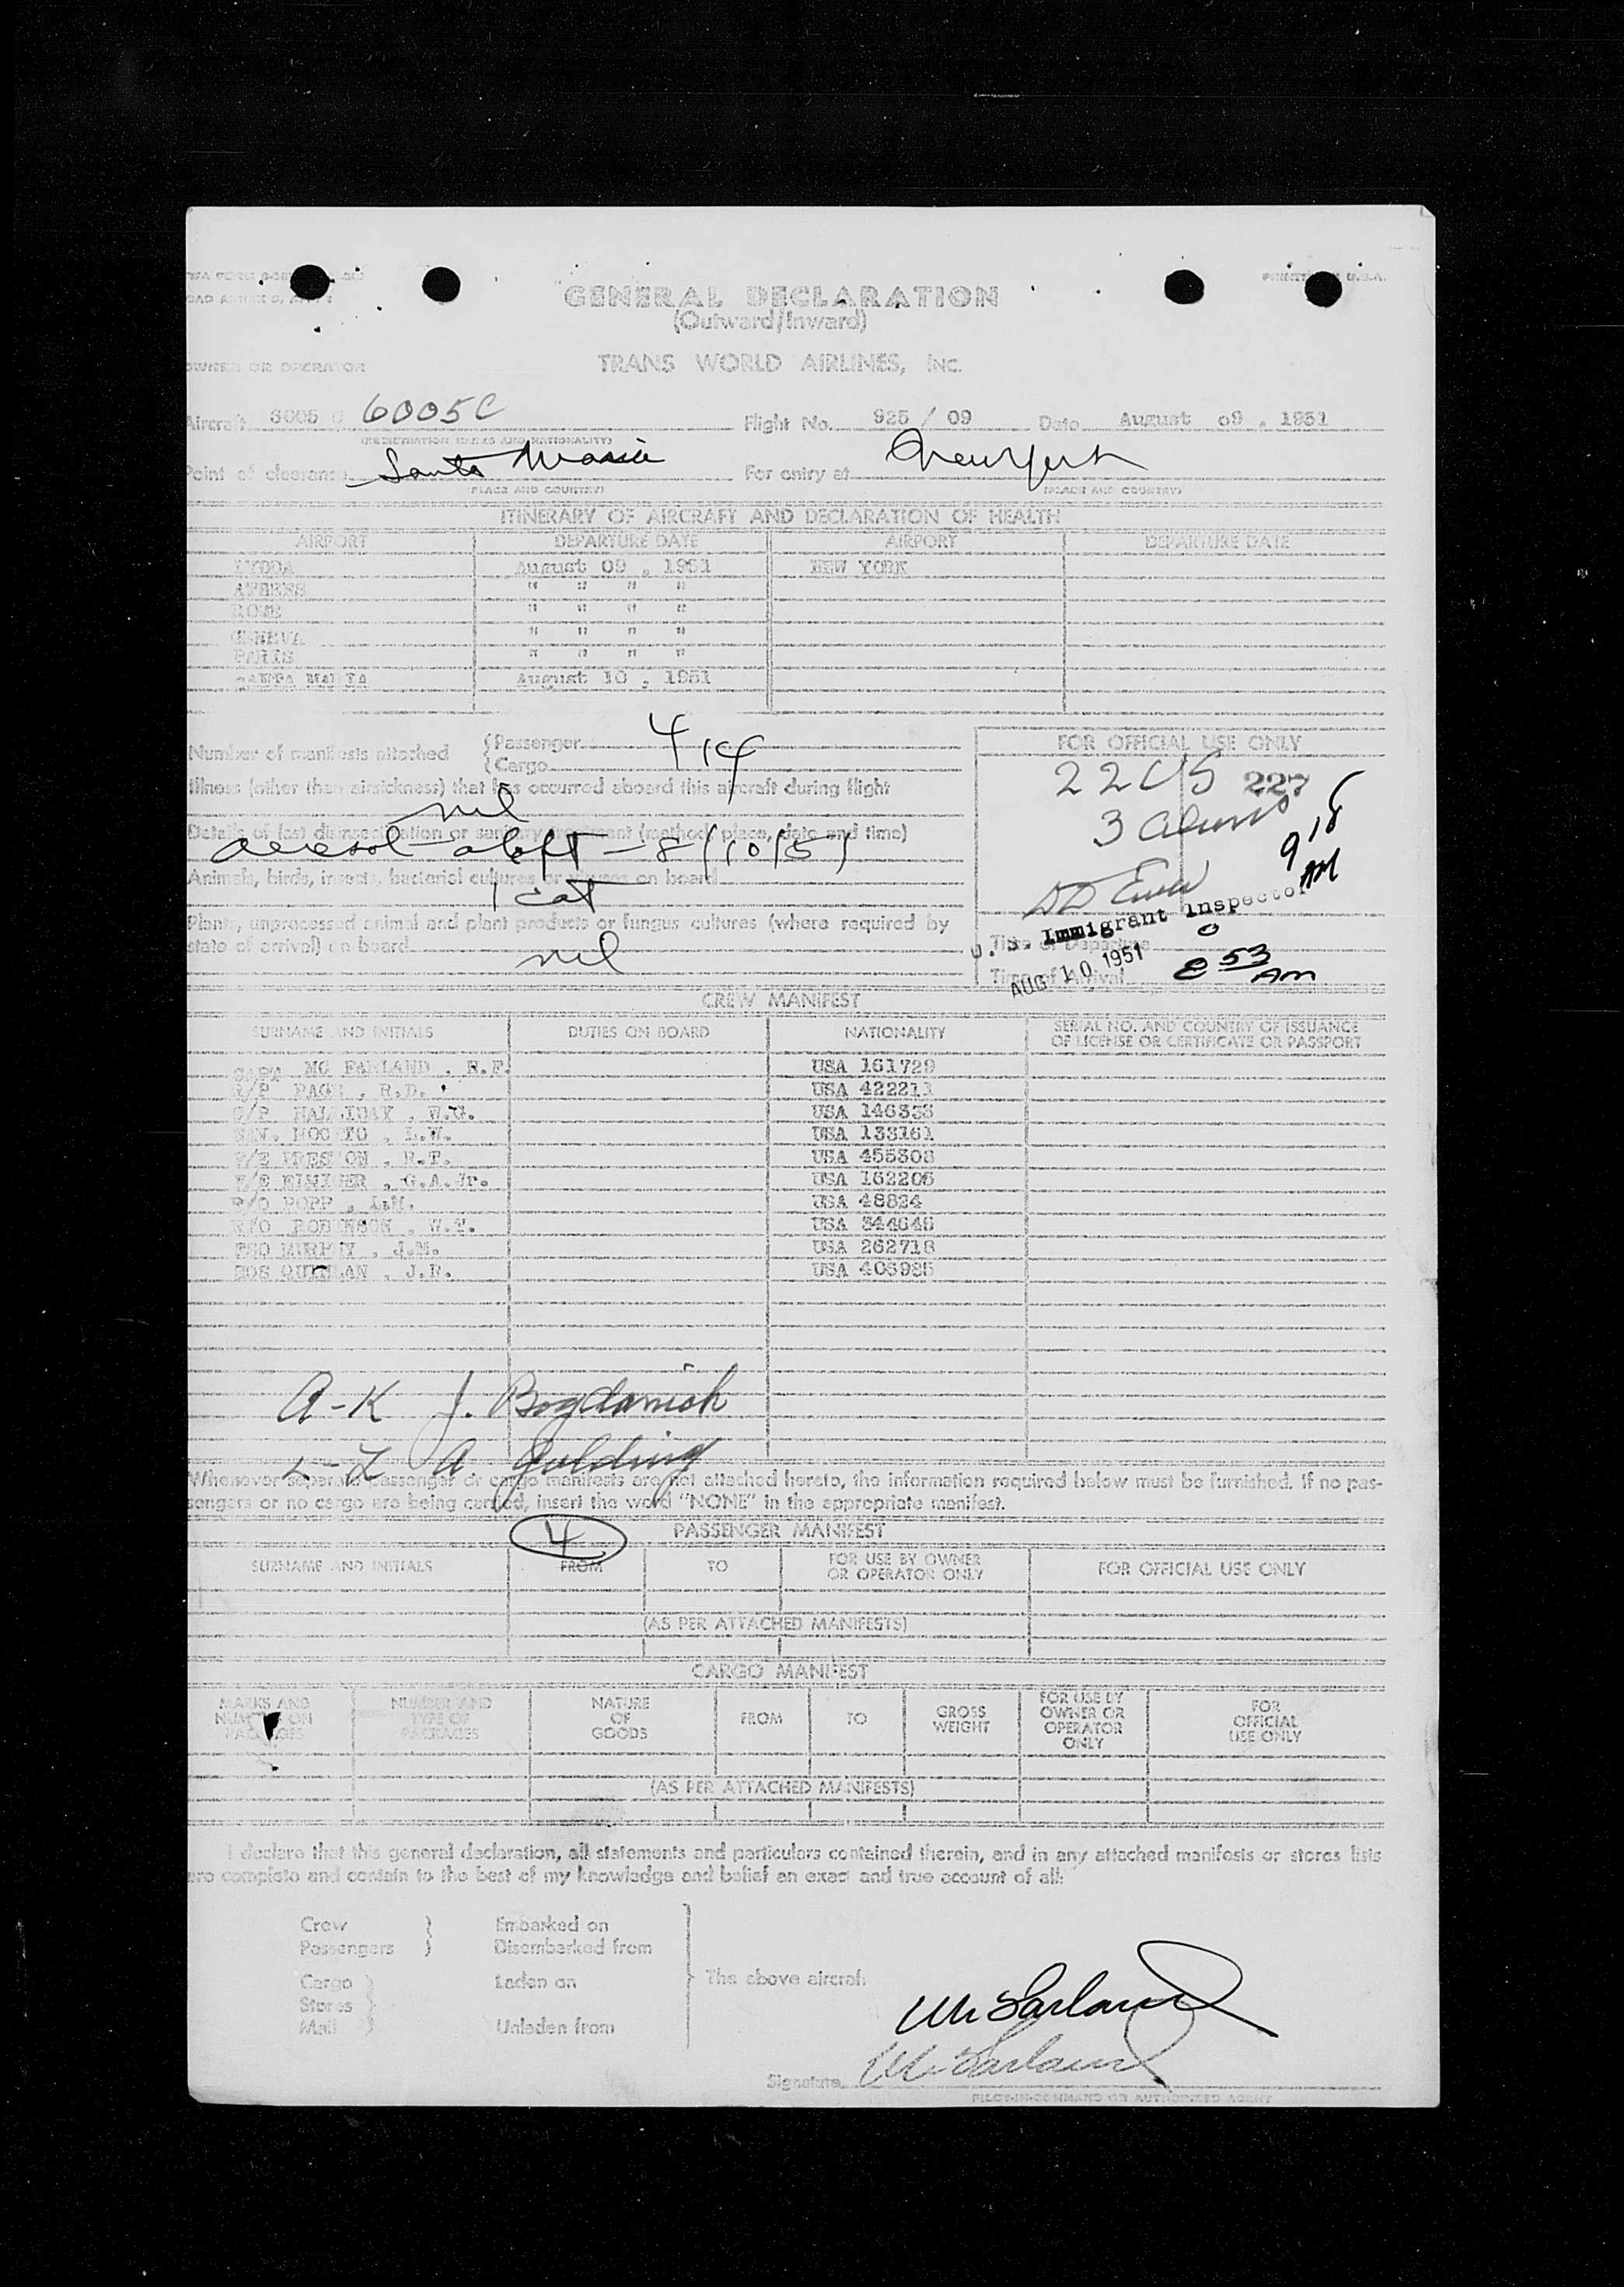 PRINTED U.S.A.
GENERAL DECLARATION
(Outward/Inward)
OWNER OR OPERATOR TRANS WORLD AIRLINES, INC.
Aircraft 6005 C 6005C Flight No. 925 / 09 Date August 09, 1951
(REGISTRATION MARKS AND NATIONALITY)
Point of clearance Santa Maria For entry at New York
(PLACE AND COUNTRY) (PLACE AND COUNTRY)
ITINERARY OF AIRCRAFT AND DECLARATION OF HEALTH
AIRPORT DEPARTURE DATE AIRPORT DEPARTURE DATE
LYDDA August 09, 1951 NEW YORK
ATHENS " " " "
ROME " " " "
GENEVA " " " "
PARIS " " " "
SANTA MARIA August 10, 1951
Number of manifests attached {Passenger 4
{Cargo 14
Illness (other than airsickness) that has occurred aboard this aircraft during flight
nil
Details of last disinsectization or sanitary treatment (method, place, date and time)
aerosol aloft - 8/10/51
Animals, birds, insects, bacterial cultures or viruses on board
1 cat
Plants, unprocessed animal and plant products or fungus cultures (where required by
state of arrival) on board
nil
FOR OFFICIAL USE ONLY
22 US 227
3 aliens
9 18 AM
U. S. Immigrant Inspector
Time of Departure
AUG 10 1951
Time of Arrival 8 53 AM
CREW MANIFEST
SURNAME AND INITIALS DUTIES ON BOARD NATIONALITY SERIAL NO. AND COUNTRY OF ISSUANCE
OF LICENSE OR CERTIFICATE OR PASSPORT
CAPT MC FARLAND, R.F. USA 161729
PAGE, R.D. USA 422211
HALLIDAY, W.G. USA 146333
NAV. USA 133161
PRESTON, R.T. USA 455308
G.A.Jr. USA 162205
R/O POPP, USA 48824
R/O ROBINSON, W.T. USA 344645
MURPHY, J.M. USA 262718
HOS QUINLAN, J.E. USA 405985
A-K J. Bogdanich
L-Z A Golding
Whenever separate passenger or cargo manifests are not attached hereto, the information required below must be furnished. If no pas-
sengers or no cargo are being carried, insert the word "NONE" in the appropriate manifest.
4 PASSENGER MANIFEST
SURNAME AND INITIALS FROM TO FOR USE BY OWNER
OR OPERATOR ONLY FOR OFFICIAL USE ONLY
(AS PER ATTACHED MANIFESTS)
CARGO MANIFEST
MARKS AND
NUMBERS ON
PACKAGES
NUMBER AND
TYPE OF
PACKAGES
NATURE
OF
GOODS
FROM
TO
GROSS
WEIGHT
FOR USE BY
OWNER OR
OPERATOR
ONLY
FOR
OFFICIAL
USE ONLY
(AS PER ATTACHED MANIFESTS)
I declare that this general declaration, all statements and particulars contained therein, and in any attached manifests or stores lists
are complete and contain to the best of my knowledge and belief an exact and true account of all:
Crew } Embarked on
Passengers } Disembarked from
Cargo } Laden on The above aircraft
Stores
Mail } Unladen from
McFarland
Signature McFarland
PILOT-IN-COMMAND OR AUTHORIZED AGENT